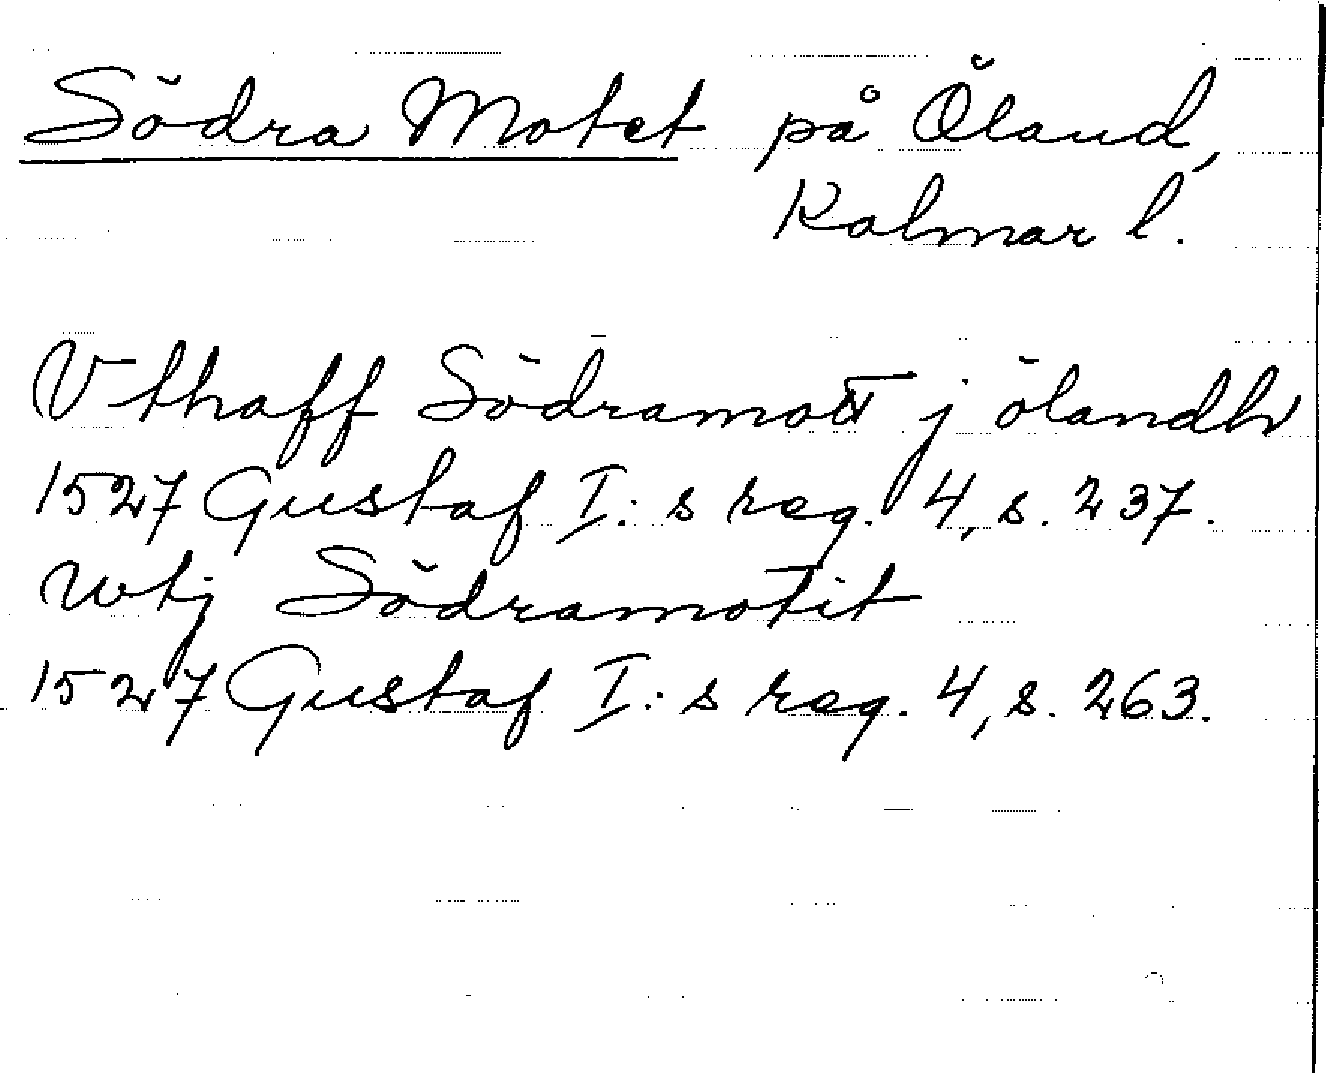 Södra Motet på Öland,
Kalmar l.
Vthaff Södramott j ölandh
1527 Gustaf I:s reg. 4, s. 237.
Utj Södramotit
1527 Gustaf I:s reg. 4, s. 263.